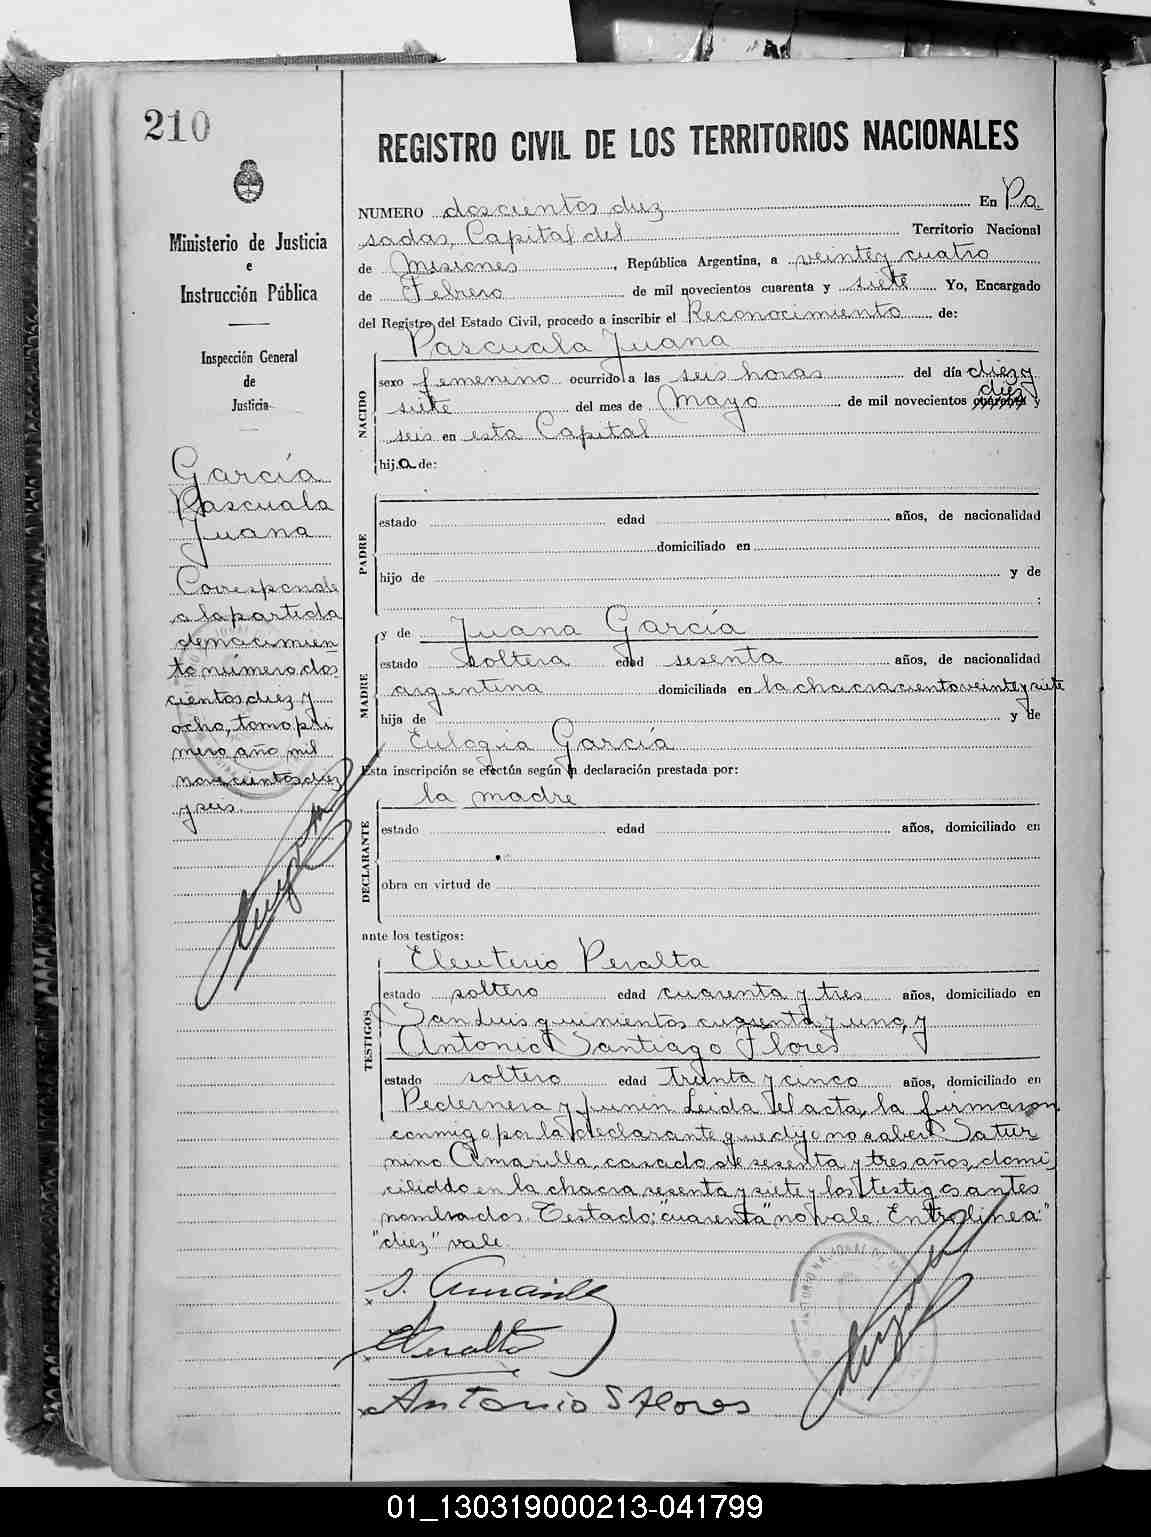 210
Ministerio de Justicia
e
Instrucción Pública
Inspección General
de
Justicia
García
Pascuala
Juana
Corresponde
a la partida
de nacimien
to número dos
cientos diez y
ocho, tomo pri
mero, año mil
novecientos diez
y seis.
REGISTRO CIVIL DE LOS TERRITORIOS NACIONALES
NUMERO doscientos diez En Po
sadas, Capital del Territorio Nacional
de Misiones, República Argentina, a veinte y cuatro
de Febrero de mil novecientos cuarenta y siete Yo, Encargado
del Registro del Estado Civil, procedo a inscribir el Reconocimiento de:
Pascuala Juana
NACIDO
sexo femenino ocurrido a las seis horas del día diez y
siete del mes de Mayo de mil novecientos cuarenta diez y
seis en esta Capital
hija de:
PADRE
estado edad años, de nacionalidad
domiciliado en
hijo de y de
:
MADRE
y de Juana García
estado soltera edad sesenta años, de nacionalidad
argentina domiciliada en la chacra ciento veinte y siete
hija de y de
Eulogia García
Esta inscripción se efectúa según la declaración prestada por:
la madre
DECLARANTE
estado edad años, domiciliado en
obra en virtud de
ante los testigos:
TESTIGOS
Eleuterio Peralta
estado soltero edad cuarenta y tres años, domiciliado en
San Luis quinientos cuarenta y uno, y
Antonio Santiago Flores
estado soltero edad treinta y cinco años, domiciliado en
Pedernera y Junin Leida el acta, la firmaron
conmigo por la declarante que dijo no saber Satur
nino Amarilla, casado de sesenta y tres años, domi
ciliado en la chacra sesenta y siete y los testigos antes
nombrados. Testado: "cuarenta" no vale. Entrelinea: "
"diez" vale.
S. Amarilla
EPeralta
Antonio S Flores
01_130319000213-041799